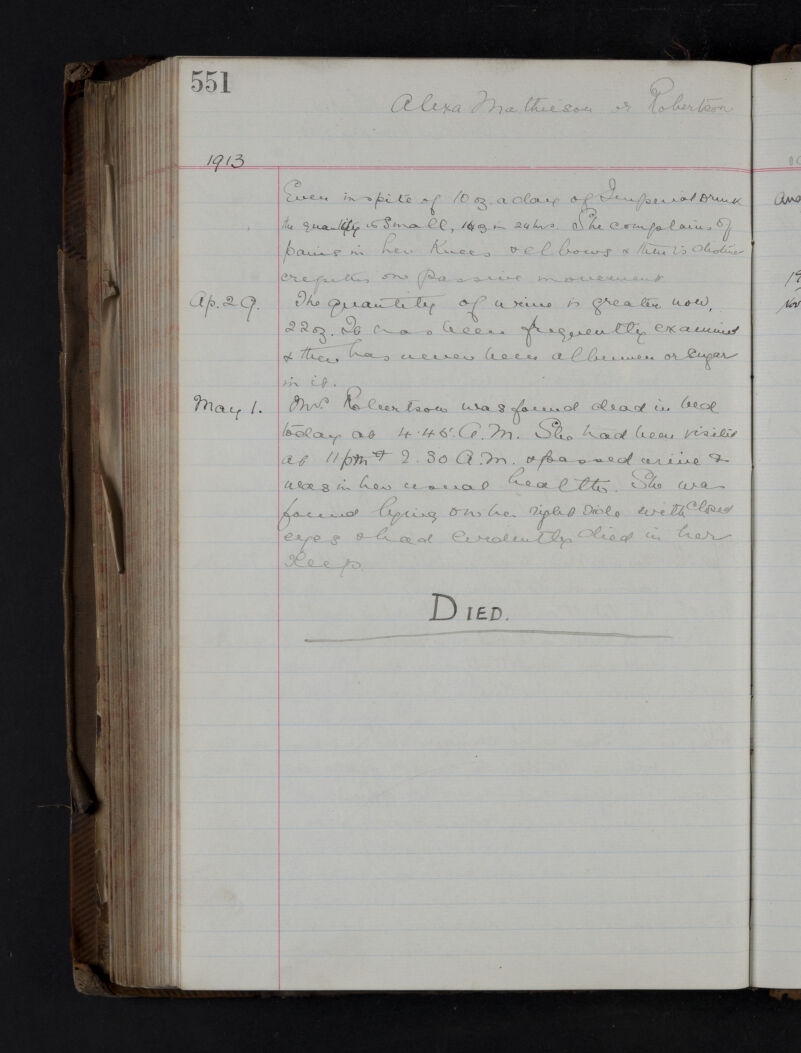 551
Alexa Mathieson or Robertson
1913
Even in spite of 10 oz. a day of Imperial Drink
the quantity is small, 14 oz in 24 hrs. She complains of
pains in her Knees & elbows & there is distinct
crepitus on passive movement
Ap. 29. The quantity of urine is greater now,
22 oz. It has been frequently examined
& there has never been albumen or sugar
in it.
May 1. Mrs Robertson was found dead in bed
today at 4.45 A.M. She had been visited
at 11 pm & 2.30 A.M. & passed urine &
was in her usual health. She was
found lying on her right side with closed
eyes & had evidently died in her
sleep.
DIED.
19
Nov